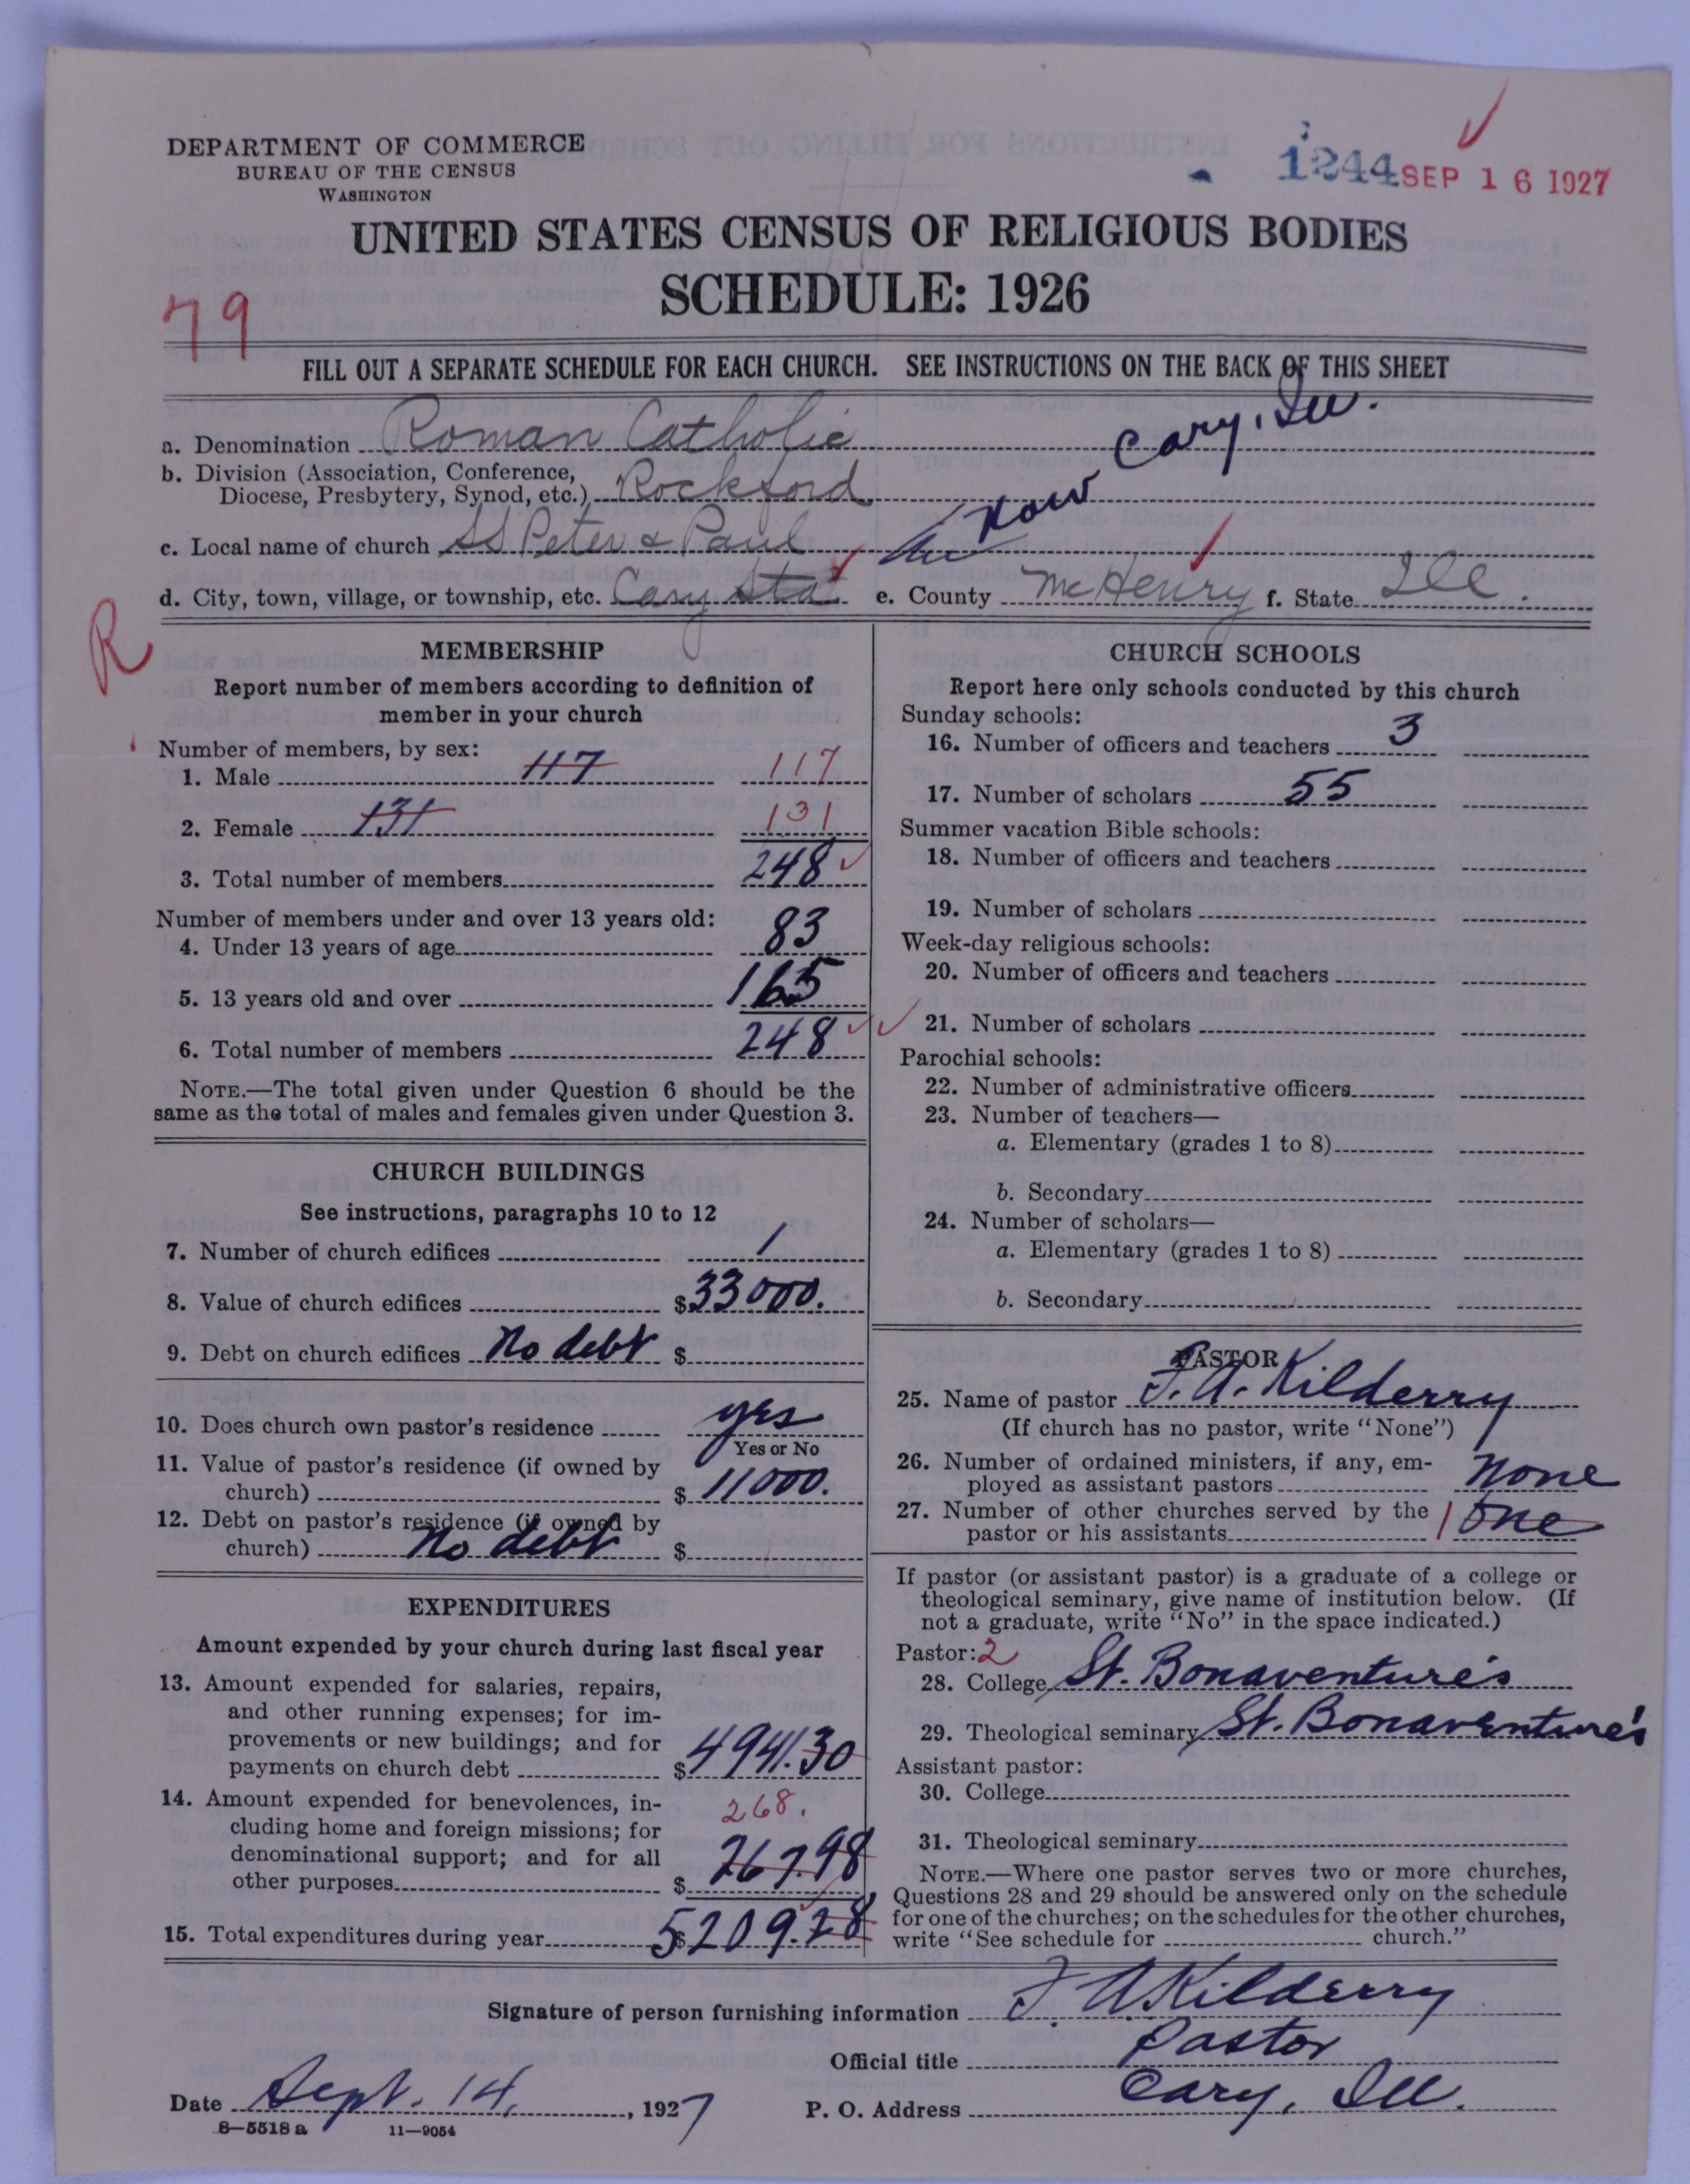 DEPARTMENT OF COMMERCE
BUREAU OF THE CENSUS
WASHINGTON
1244 SEP 16 1927
UNITED STATES CENSUS OF RELIGIOUS BODIES
SCHEDULE: 1926
79
FILL OUT A SEPARATE SCHEDULE FOR EACH CHURCH. SEE INSTRUCTIONS ON THE BACK OF THIS SHEET
a. Denomination Roman Catholic
Now Cary, Ill.
b. Division (Association, Conference,
Diocese, Presbytery, Synod, etc.) Rockford
c. Local name of church SS Peter & Paul
d. City, town, village, or township, etc. Cary Sta e. County McHenry f. State Ill.
R
MEMBERSHIP
Report number of members according to definition of
member in your church
Number of members, by sex:
1. Male 117 117
2. Female 131 131
3. Total number of members 248
Number of members under and over 13 years old:
4. Under 13 years of age 83
5. 13 years old and over 165
6. Total number of members 248
NOTE.—The total given under Question 6 should be the
same as the total of males and females given under Question 3.
CHURCH BUILDINGS
See instructions, paragraphs 10 to 12
7. Number of church edifices 1
8. Value of church edifices $33000.
9. Debt on church edifices No debt $
10. Does church own pastor's residence yes
Yes or No
11. Value of pastor's residence (if owned by
church) $11000.
12. Debt on pastor's residence (if owned by
church) No debt $
EXPENDITURES
Amount expended by your church during last fiscal year
13. Amount expended for salaries, repairs,
and other running expenses; for im-
provements or new buildings; and for
payments on church debt $4941.30
14. Amount expended for benevolences, in-
268.
cluding home and foreign missions; for
denominational support; and for all
other purposes $267.98
15. Total expenditures during year $5209.28
CHURCH SCHOOLS
Report here only schools conducted by this church
Sunday schools:
16. Number of officers and teachers 3
17. Number of scholars 55
Summer vacation Bible schools:
18. Number of officers and teachers
19. Number of scholars
Week-day religious schools:
20. Number of officers and teachers
21. Number of scholars
Parochial schools:
22. Number of administrative officers
23. Number of teachers—
a. Elementary (grades 1 to 8)
b. Secondary
24. Number of scholars—
a. Elementary (grades 1 to 8)
b. Secondary
PASTOR
25. Name of pastor F. A. Kilderry
(If church has no pastor, write "None")
26. Number of ordained ministers, if any, em-
ployed as assistant pastors none
27. Number of other churches served by the
pastor or his assistants 1 one
If pastor (or assistant pastor) is a graduate of a college or
theological seminary, give name of institution below. (If
not a graduate, write "No" in the space indicated.)
Pastor: 2
28. College St. Bonaventure's
29. Theological seminary St. Bonaventure's
Assistant pastor:
30. College
31. Theological seminary
NOTE.—Where one pastor serves two or more churches,
Questions 28 and 29 should be answered only on the schedule
for one of the churches; on the schedules for the other churches,
write "See schedule for church."
Signature of person furnishing information F. A Kilderry
Official title Pastor
Date Sept. 14, 1927 P. O. Address Cary, Ill.
8—5518 a 11—9054